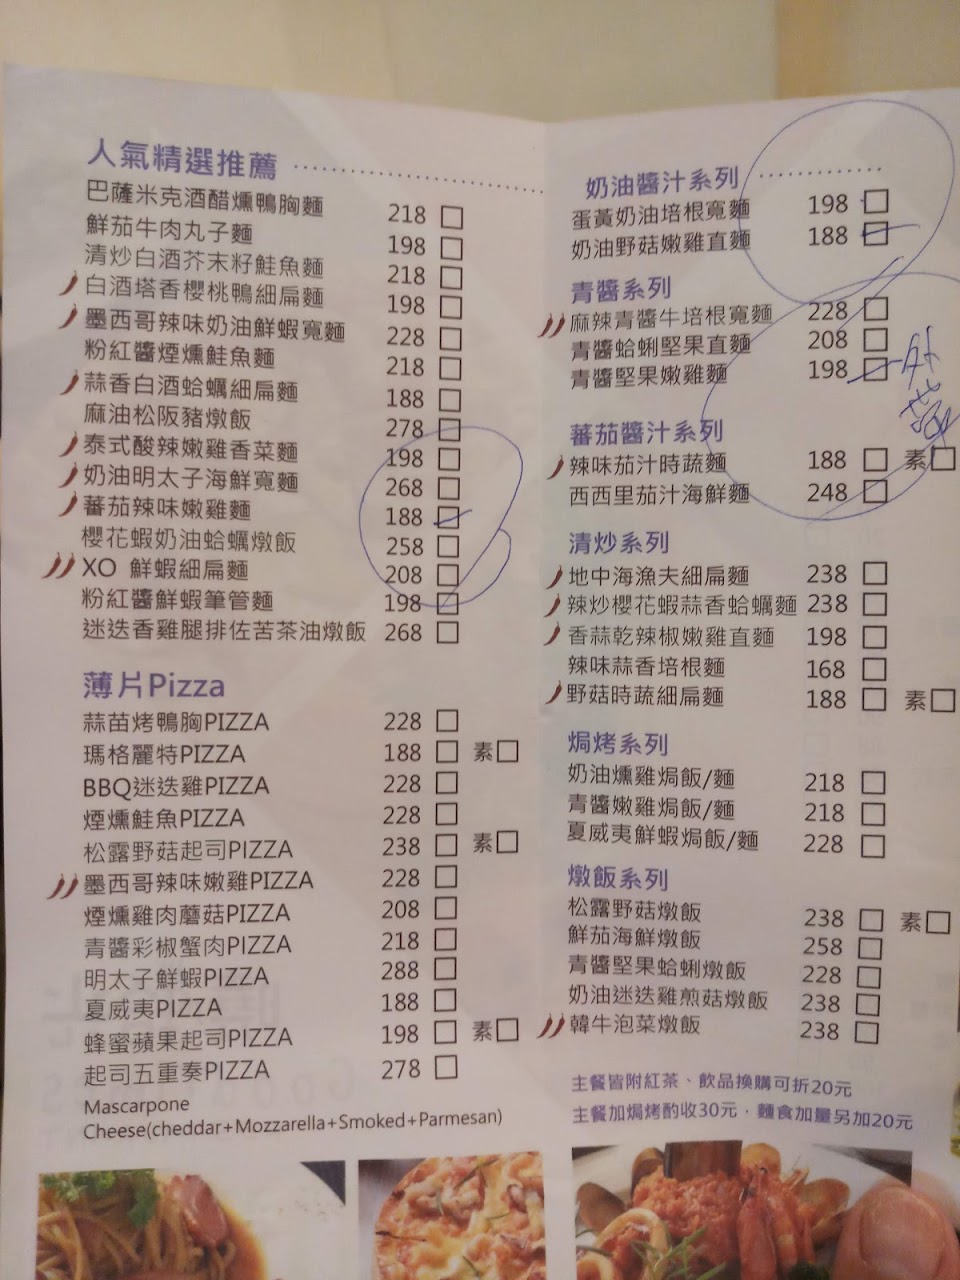 人氣精選推薦
巴薩米克酒醋燻鴨胸麵 218 □
鮮茄牛肉丸子麵 198 □
清炒白酒芥末籽鮭魚麵 218 □
白酒塔香櫻桃鴨細扁麵 198 □
墨西哥辣味奶油鮮蝦寬麵 228 □
粉紅醬煙燻鮭魚麵 218 □
蒜香白酒蛤蠣細扁麵 188 □
麻油松阪豬燉飯 278 □
泰式酸辣嫩雞香菜麵 198 □
奶油明太子海鮮寬麵 268 □
蕃茄辣味嫩雞麵 188 □
櫻花蝦奶油蛤蠣燉飯 258 □
XO 鮮蝦細扁麵 208 □
粉紅醬鮮蝦筆管麵 198 □
迷迭香雞腿排佐苦茶油燉飯 268 □
薄片Pizza
蒜苗烤鴨胸PIZZA 228 □
瑪格麗特PIZZA 188 □ 素□
BBQ迷迭雞PIZZA 228 □
煙燻鮭魚PIZZA 228 □
松露野菇起司PIZZA 238 □ 素□
墨西哥辣味嫩雞PIZZA 228 □
煙燻雞肉蘑菇PIZZA 208 □
青醬彩椒蟹肉PIZZA 218 □
明太子鮮蝦PIZZA 288 □
夏威夷PIZZA 188 □
蜂蜜蘋果起司PIZZA 198 □ 素□
起司五重奏PIZZA 278 □
Mascarpone
Cheese(cheddar+Mozzarella+Smoked+Parmesan)
奶油醬汁系列
蛋黃奶油培根寬麵 198 □
奶油野菇嫩雞直麵 188 □
青醬系列
麻辣青醬牛培根寬麵 228 □
青醬蛤蜊堅果直麵 208 □
青醬堅果嫩雞麵 198 □ 外
蕃茄醬汁系列
辣味茄汁時蔬麵 188 □ 素□
西西里茄汁海鮮麵 248 □
清炒系列
地中海漁夫細扁麵 238 □
辣炒櫻花蝦蒜香蛤蠣麵 238 □
香蒜乾辣椒嫩雞直麵 198 □
辣味蒜香培根麵 168 □
野菇時蔬細扁麵 188 □ 素□
焗烤系列
奶油燻雞焗飯/麵 218 □
青醬嫩雞焗飯/麵 218 □
夏威夷鮮蝦焗飯/麵 228 □
燉飯系列
松露野菇燉飯 238 □ 素□
鮮茄海鮮燉飯 258 □
青醬堅果蛤蜊燉飯 228 □
奶油迷迭雞煎菇燉飯 238 □
韓牛泡菜燉飯 238 □
主餐皆附紅茶、飲品換購可折20元
主餐加焗烤酌收30元，麵食加量另加20元